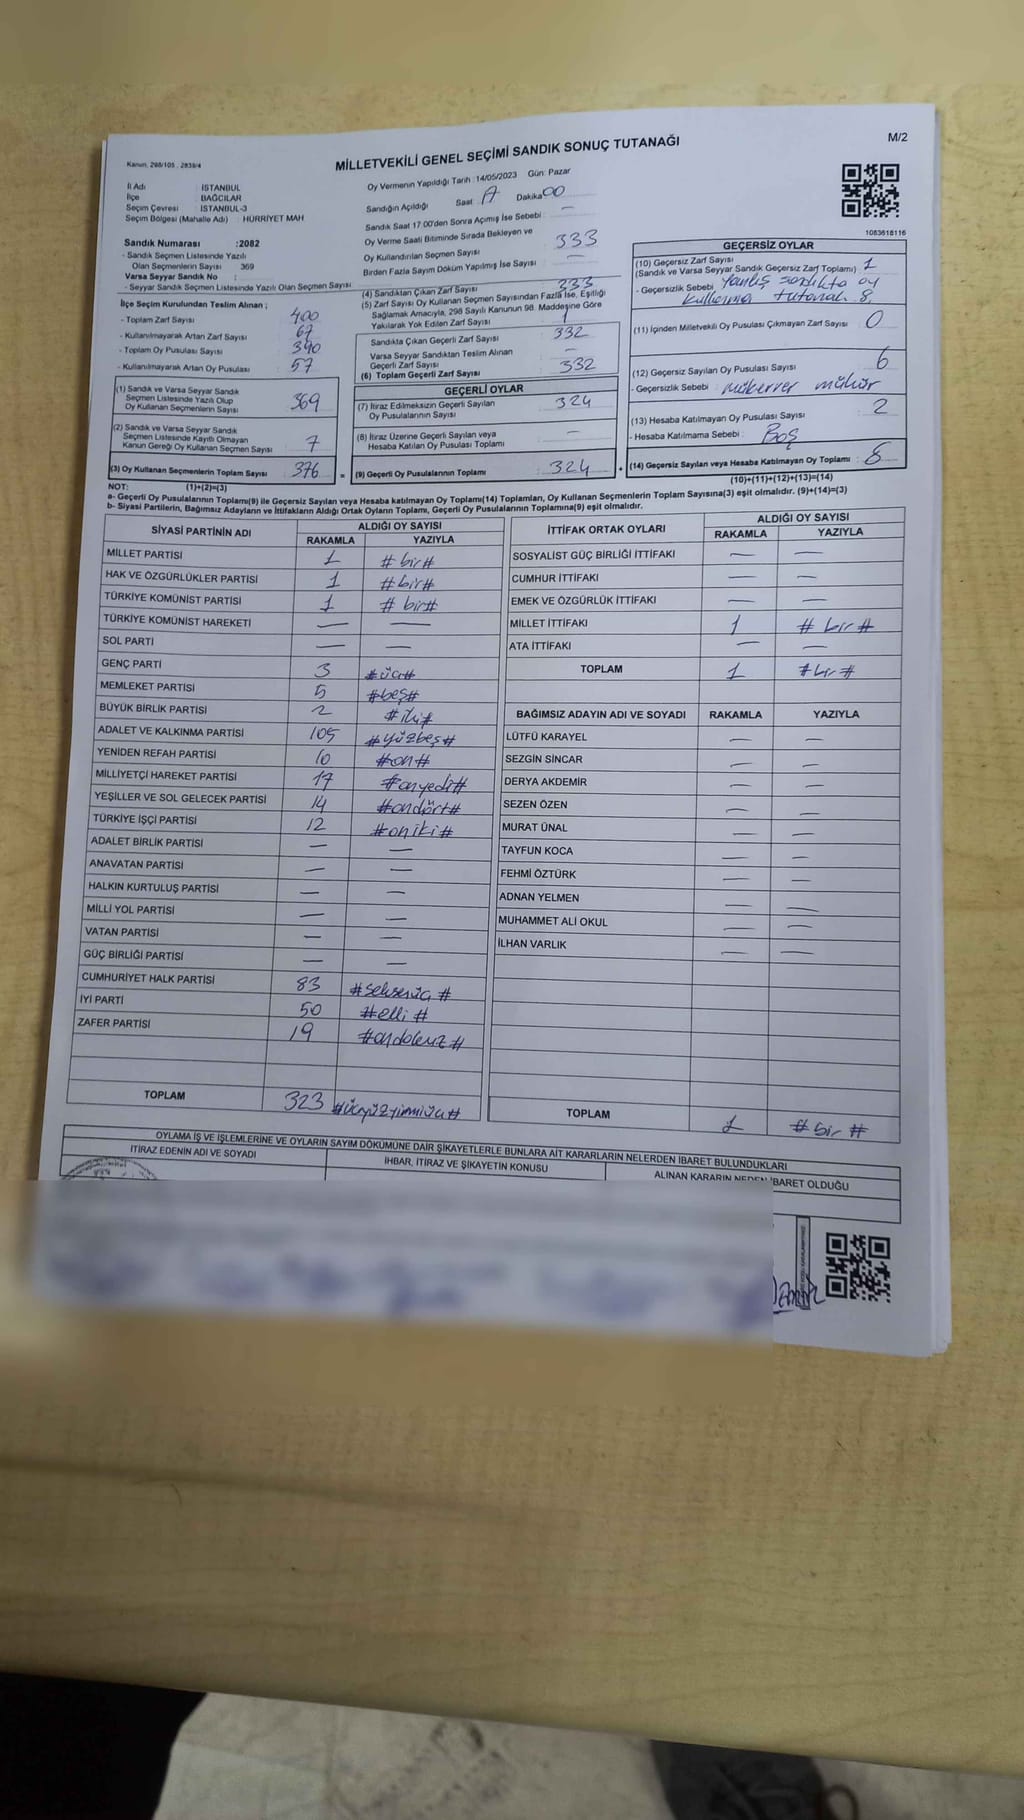 M/2
Kanun. 298/105 , 2839/4
MİLLETVEKİLİ GENEL SEÇİMİ SANDIK SONUÇ TUTANAĞI
İl Adı : İSTANBUL
İlçe : BAĞCILAR
Seçim Çevresi : İSTANBUL-3
Seçim Bölgesi (Mahalle Adı) : HÜRRİYET MAH
Sandık Numarası :2082
- Sandık Seçmen Listesinde Yazılı
Olan Seçmenlerin Sayısı 369
Varsa Seyyar Sandık No :
- Seyyar Sandık Seçmen Listesinde Yazılı Olan Seçmen Sayısı
İlçe Seçim Kurulundan Teslim Alınan ;
- Toplam Zarf Sayısı 400
- Kullanılmayarak Artan Zarf Sayısı 67
- Toplam Oy Pusulası Sayısı 390
- Kullanılmayarak Artan Oy Pusulası 57
(1) Sandık ve Varsa Seyyar Sandık
Seçmen Listesinde Yazılı Olup
Oy Kullanan Seçmenlerin Sayısı 369
(2) Sandık ve Varsa Seyyar Sandık
Seçmen Listesinde Kayıtlı Olmayan
Kanun Gereği Oy Kullanan Seçmen Sayısı 7
(3) Oy Kullanan Seçmenlerin Toplam Sayısı 376
Oy Vermenin Yapıldığı Tarih :14/05/2023 Gün: Pazar
Sandığın Açıldığı Saat 17 Dakika 00
Sandık Saat 17.00'den Sonra Açımış İse Sebebi : —
Oy Verme Saati Bitiminde Sırada Bekleyen ve
Oy Kullandırılan Seçmen Sayısı 333
Birden Fazla Sayım Döküm Yapılmış İse Sayısı : —
(4) Sandıktan Çıkan Zarf Sayısı 333
(5) Zarf Sayısı Oy Kullanan Seçmen Sayısından Fazla İse, Eşitliği
Sağlamak Amacıyla, 298 Sayılı Kanunun 98. Maddesine Göre
Yakılarak Yok Edilen Zarf Sayısı 1
Sandıkta Çıkan Geçerli Zarf Sayısı 332
Varsa Seyyar Sandıktan Teslim Alınan
Geçerli Zarf Sayısı —
(6) Toplam Geçerli Zarf Sayısı 332
GEÇERLİ OYLAR
(7) İtiraz Edilmeksizin Geçerli Sayılan
Oy Pusulalarının Sayısı 324
(8) İtiraz Üzerine Geçerli Sayılan veya
Hesaba Katılan Oy Pusulası Toplamı —
= (9) Geçerli Oy Pusulalarının Toplamı 324 +
1083618116
GEÇERSİZ OYLAR
(10) Geçersiz Zarf Sayısı
(Sandık ve Varsa Seyyar Sandık Geçersiz Zarf Toplamı) 1
- Geçersizlik Sebebi : Yanlış sandıkta oy
kullanma tutanak 8.
(11) İçinden Milletvekili Oy Pusulası Çıkmayan Zarf Sayısı : 0
(12) Geçersiz Sayılan Oy Pusulası Sayısı : 6
- Geçersizlik Sebebi : mükerrer mühür
(13) Hesaba Katılmayan Oy Pusulası Sayısı : 2
- Hesaba Katılmama Sebebi : Boş
(14) Geçersiz Sayılan veya Hesaba Katılmayan Oy Toplamı : 8
NOT: (1)+(2)=(3) (10)+(11)+(12)+(13)=(14)
a- Geçerli Oy Pusulalarının Toplamı(9) ile Geçersiz Sayılan veya Hesaba katılmayan Oy Toplamı(14) Toplamları, Oy Kullanan Seçmenlerin Toplam Sayısına(3) eşit olmalıdır. (9)+(14)=(3)
b- Siyasi Partilerin, Bağımsız Adayların ve İttifakların Aldığı Ortak Oyların Toplamı, Geçerli Oy Pusulalarının Toplamına(9) eşit olmalıdır.
SİYASİ PARTİNİN ADI ALDIĞI OY SAYISI
RAKAMLA YAZIYLA
MİLLET PARTİSİ 1 # bir#
HAK VE ÖZGÜRLÜKLER PARTİSİ 1 #bir#
TÜRKİYE KOMÜNİST PARTİSİ 1 # bir#
TÜRKİYE KOMÜNİST HAREKETİ — —
SOL PARTİ — —
GENÇ PARTİ 3 #üç#
MEMLEKET PARTİSİ 5 #beş#
BÜYÜK BİRLİK PARTİSİ 2 #iki#
ADALET VE KALKINMA PARTİSİ 105 #yüzbeş#
YENİDEN REFAH PARTİSİ 10 #on#
MİLLİYETÇİ HAREKET PARTİSİ 17 #onyedi#
YEŞİLLER VE SOL GELECEK PARTİSİ 14 #ondört#
TÜRKİYE İŞÇİ PARTİSİ 12 #oniki#
ADALET BİRLİK PARTİSİ — —
ANAVATAN PARTİSİ — —
HALKIN KURTULUŞ PARTİSİ — —
MİLLİ YOL PARTİSİ — —
VATAN PARTİSİ — —
GÜÇ BİRLİĞİ PARTİSİ — —
CUMHURİYET HALK PARTİSİ 83 #seksenüç #
İYİ PARTİ 50 #elli #
ZAFER PARTİSİ 19 #ondokuz #
TOPLAM 323 #üçyüzyirmiüç#
İTTİFAK ORTAK OYLARI ALDIĞI OY SAYISI
RAKAMLA YAZIYLA
SOSYALİST GÜÇ BİRLİĞİ İTTİFAKI — —
CUMHUR İTTİFAKI — —
EMEK VE ÖZGÜRLÜK İTTİFAKI — —
MİLLET İTTİFAKI 1 # bir #
ATA İTTİFAKI — —
TOPLAM 1 #bir #
BAĞIMSIZ ADAYIN ADI VE SOYADI RAKAMLA YAZIYLA
LÜTFÜ KARAYEL — —
SEZGİN SİNCAR — —
DERYA AKDEMİR — —
SEZEN ÖZEN — —
MURAT ÜNAL — —
TAYFUN KOCA — —
FEHMİ ÖZTÜRK — —
ADNAN YELMEN — —
MUHAMMET ALİ OKUL — —
İLHAN VARLIK — —
TOPLAM 1 # bir #
OYLAMA İŞ VE İŞLEMLERİNE VE OYLARIN SAYIM DÖKÜMÜNE DAİR ŞİKAYETLERLE BUNLARA AİT KARARLARIN NELERDEN İBARET BULUNDUKLARI
İTİRAZ EDENİN ADI VE SOYADI İHBAR, İTİRAZ VE ŞİKAYETİN KONUSU ALINAN KARARIN NEDEN İBARET OLDUĞU